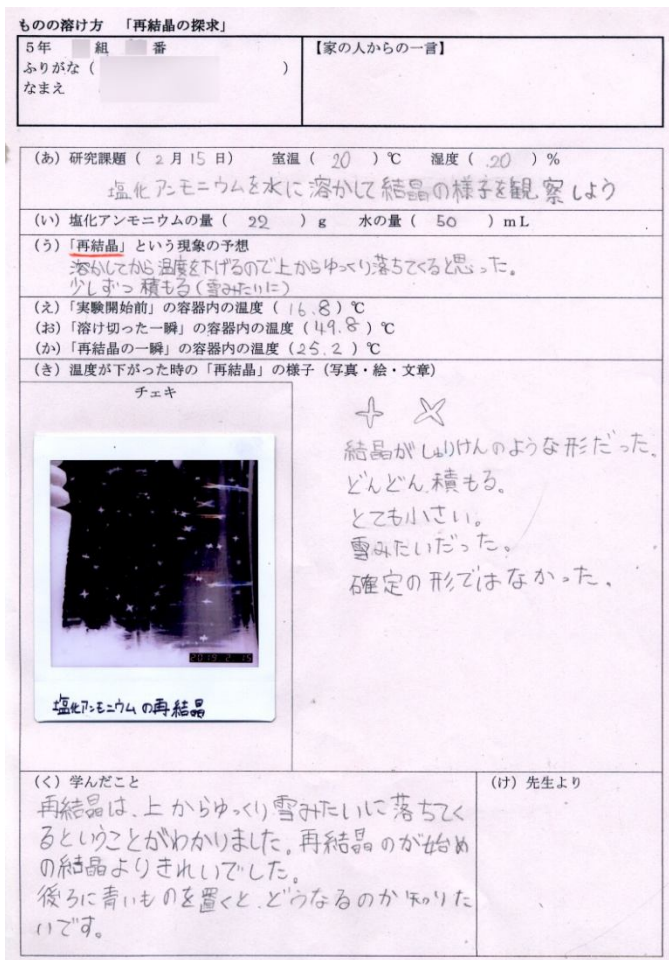 ものの溶け方 「再結晶の探求」
5年 組 番
ふりがな ( )
なまえ
【家の人からの一言】
(あ) 研究課題 ( 2月15日) 室温 ( 20 ) ℃ 湿度 ( 20 ) %
塩化アンモニウムを水に溶かして結晶の様子を観察しよう
(い) 塩化アンモニウムの量 ( 22 ) g 水の量 ( 50 ) mL
(う) 「再結晶」という現象の予想
溶かしてから温度を下げるので上からゆっくり落ちてくると思った。
少しずつ積もる(雪みたいに)
(え) 「実験開始前」の容器内の温度 ( 16.8 ) ℃
(お) 「溶け切った一瞬」の容器内の温度 ( 49.8 ) ℃
(か) 「再結晶の一瞬」の容器内の温度 ( 25.2 ) ℃
(き) 温度が下がった時の「再結晶」の様子 (写真・絵・文章)
チェキ
2019 2 15
塩化アンモニウムの再結晶
結晶がしゅりけんのような形だった。
どんどん積もる。
とても小さい。
雪みたいだった。
確定の形ではなかった。
(く) 学んだこと
再結晶は、上からゆっくり雪みたいに落ちてく
るということがわかりました。再結晶のが始め
の結晶よりきれいでした。
後ろに青いものを置くと、どうなるのか知りた
いです。
(け) 先生より